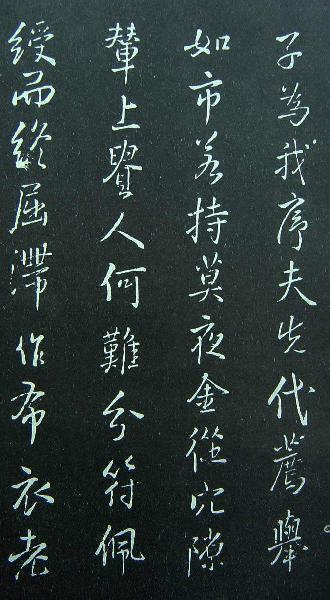 子為我序夫先代薦舉
如市若持莫夜金從穴隙
輦上譽人何難分符佩
綬而終屈滯作布衣老